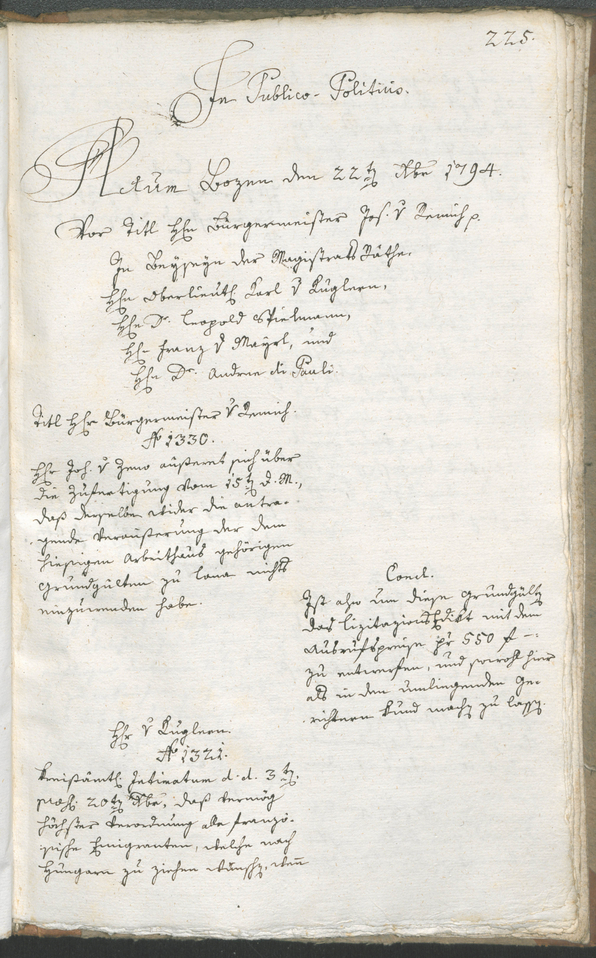 225.
In Publico-Politicis.
Actum Bozen den 22ten Xbr 1794.
Vor Titl Hhn Bürgermeister Jos. v Remich p.
In Beyseyn der Magistrats Räthe,
Hhn Oberlieuth Karl v Kuglern,
Hhn Dr. Leopold Spielmann,
Hhn Franz v Mayrl, und
Hhn Dr. Andree di Pauli.
Titl Hhr Bürgermeister v Remich.
No 1330.
Hhr Joh. v Zeno äußeret sich über
die Zufertigung vom 15ten d. M.,
daß derselbe wider die antra-
gende Veräußerung der dem
hiesigen Arbeithaus gehörigen
Grundgülten zu Lana nichts
einzuwenden habe.
Concl.
Ist also um diese Grundgülten
das Lizitazions Edikt mit dem
Ausrufspreise pr 550 f –:
zu entwerfen, und sowohl hier
als in den umliegenden Ge-
richtern kund machen zu lassen.
Hhr v Kuglern.
No 1321.
Kreisämtl. Intimatum d. d. 3ten
praes. 20ten Xbr, daß vermög
höchster Verordnung alle franzö-
sische Emigranten, welche nach
Hungarn zu ziehen wünschen, wenn